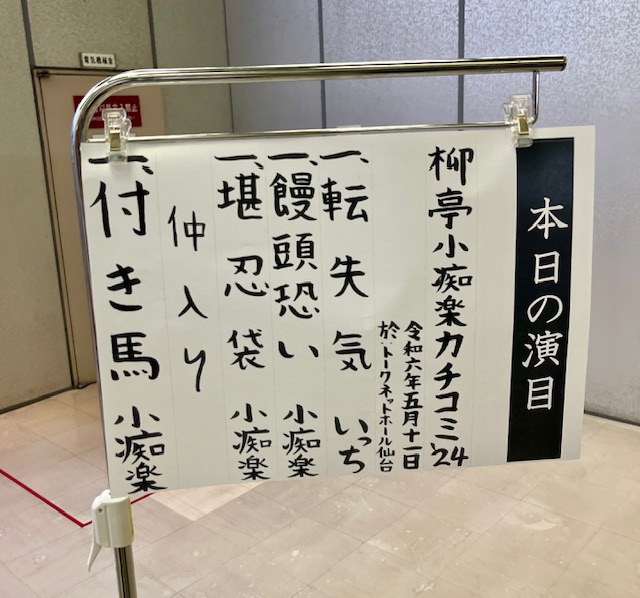 本日の演目
柳亭小痴楽カチコミ'24
令和六年五月十一日
於・トークネットホール仙台
一、転失気 いっち
一、饅頭恐い 小痴楽
一、堪忍袋 小痴楽
仲入り
一、付き馬 小痴楽
電気機械室